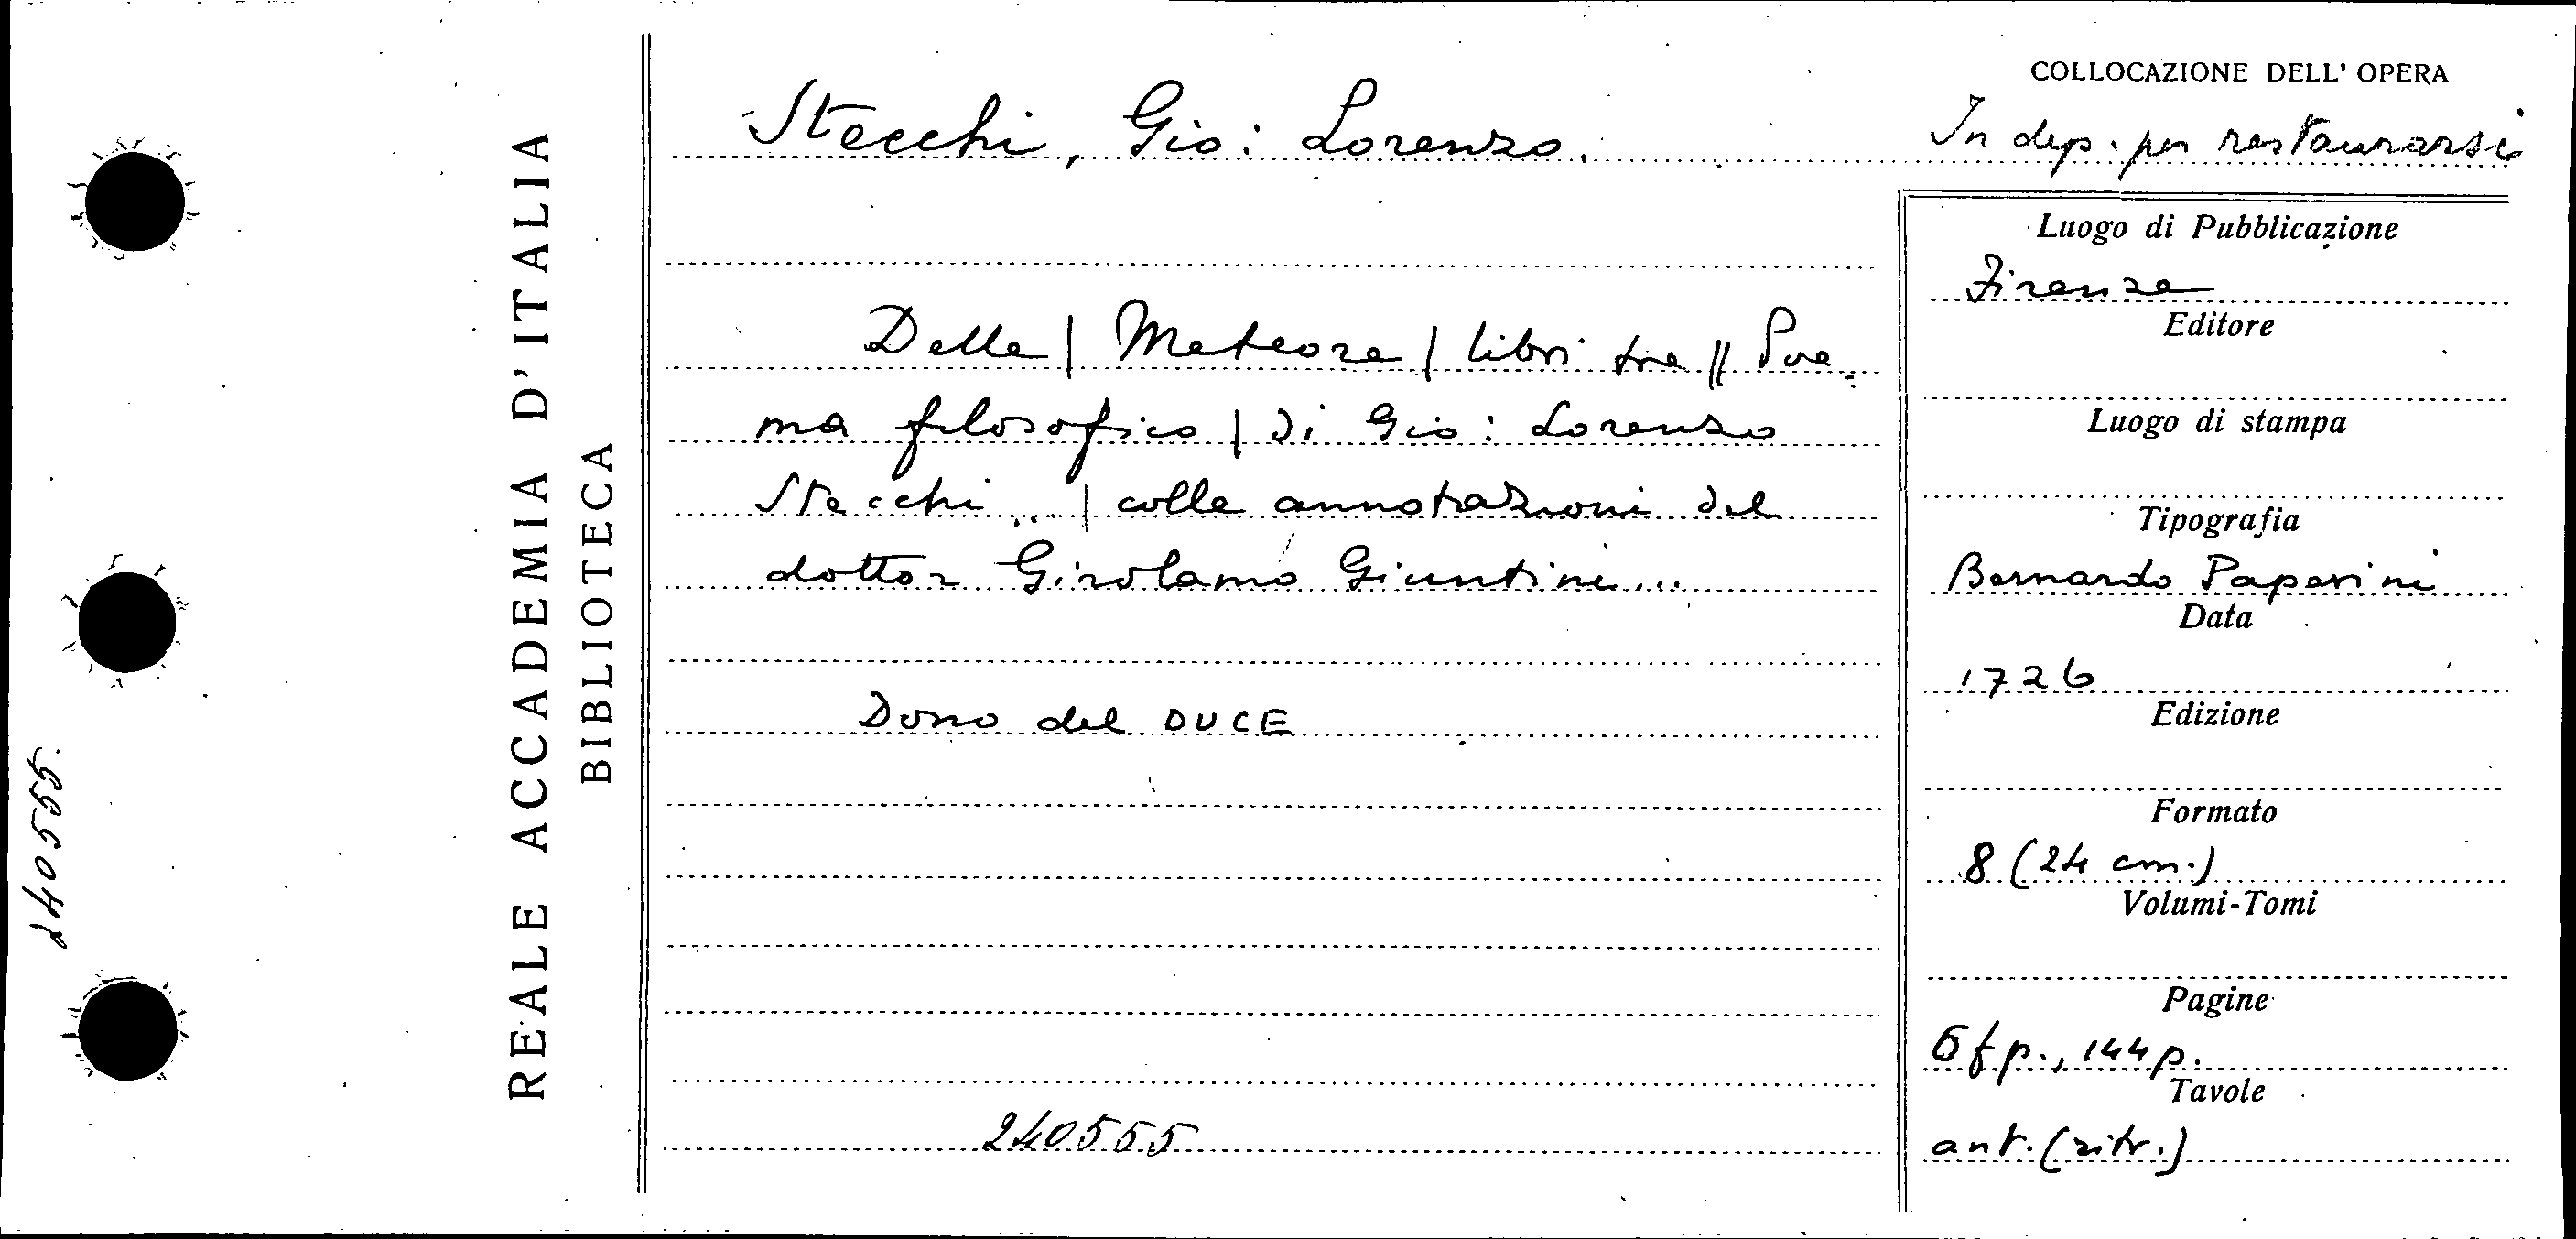 240555
REALE ACCADEMIA D'ITALIA
BIBLIOTECA
Stecchi, Gio: Lorenzo.
Delle | Meteore | libri tre || Poe=
ma filosofico | di Gio: Lorenzo
Stecchi ... | colle annotazioni del
dottor Girolamo Giuntini ...
Dono del DUCE
240555
COLLOCAZIONE DELL' OPERA
In dep. per restaurarsi
Luogo di Pubblicazione
Firenze
Editore
Luogo di stampa
Tipografia
Bernardo Paperini
Data
1726
Edizione
Formato
8 (24 cm.)
Volumi-Tomi
Pagine
6 f p., 144 p.
Tavole
ant. (ritr.)